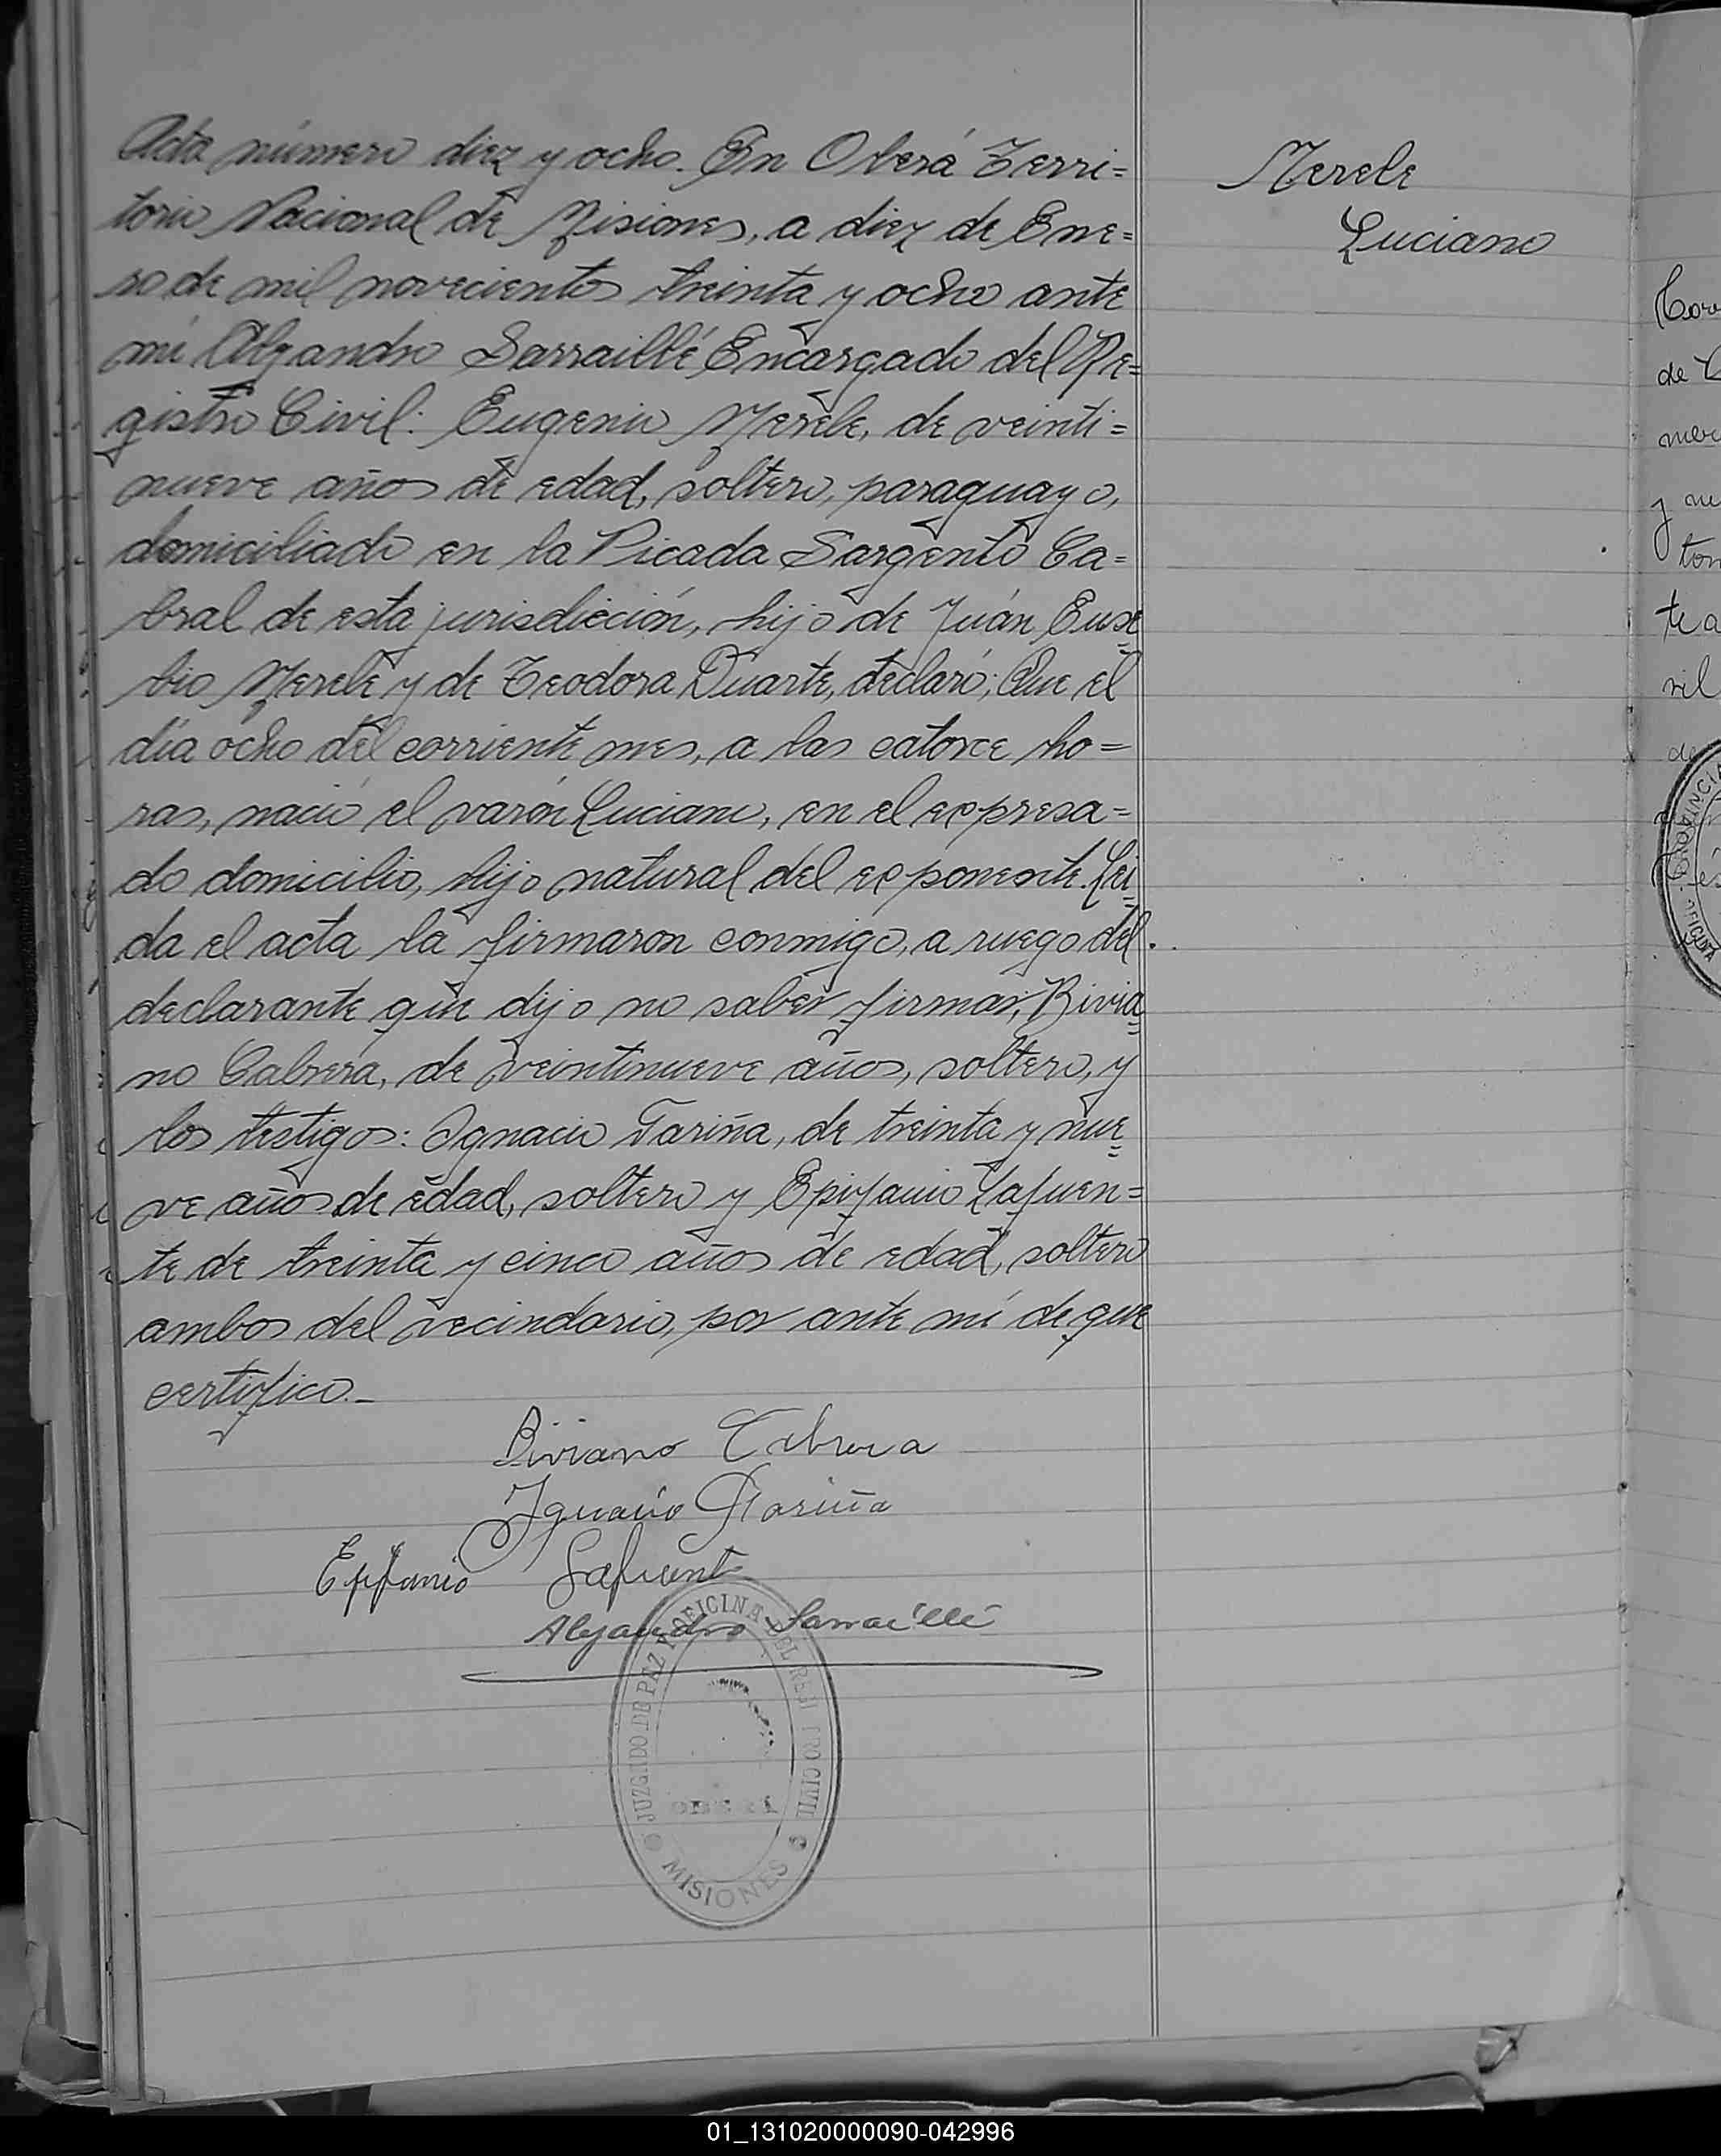 Acta número diez y ocho. En Oberá Terri=
torio Nacional de Misiones, a diez de Ene=
ro de mil novecientos treinta y ocho ante
mi Alejandro Sarraillé Encargado del Re=
gistro Civil: Eugenio Merele, de veinti=
nueve años de edad, soltero, paraguayo,
domiciliado en la Picada Sargento Ca=
bral de esta jurisdicción, hijo de Juán Euse=
bio Merele y de Teodora Duarte, declaró; Que el
día ocho del corriente mes, a las catorce ho=
ras, nació el varón Luciano, en el expresa=
do domicilio, hijo natural del exponente. Lei=
da el acta la firmaron conmigo, a ruego del
declarante que dijo no saber firmar, Bivia=
no Cabrera, de veintinueve años, soltero, y
los testigos: Ignacio Fariña, de treinta y nue=
ve años de edad, soltero y Epifanio Lafuen=
te de treinta y cinco años de edad, soltero
ambos del vecindario, por ante mí de que
certifico.-
Biviano Cabrera
Ignacio Fariña
Epifanio Lafuente
Alejandro Sarraillé
JUZGADO DE PAZ Y OFICINA DEL REGISTRO CIVIL
OBERÁ
MISIONES
Merele
Luciano
de
y
vil
de
PROVINCIA
OFICINA
01_131020000090-042996